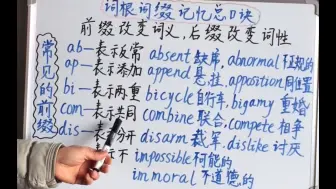 词根词缀记忆总口诀
前缀改变词义,后缀改变词性
常见的前缀
ab—表示反常 absent缺席,abnormal不正规的
ap—表示添加 append悬挂,apposition同位置
bi—表示两重 bicycle自行车,bigamy重婚
com—表示共同 combine联合,compete相争
dis—表示分开 disarm裁军,dislike讨厌
表示不 impossible可能的
immoral不道德的